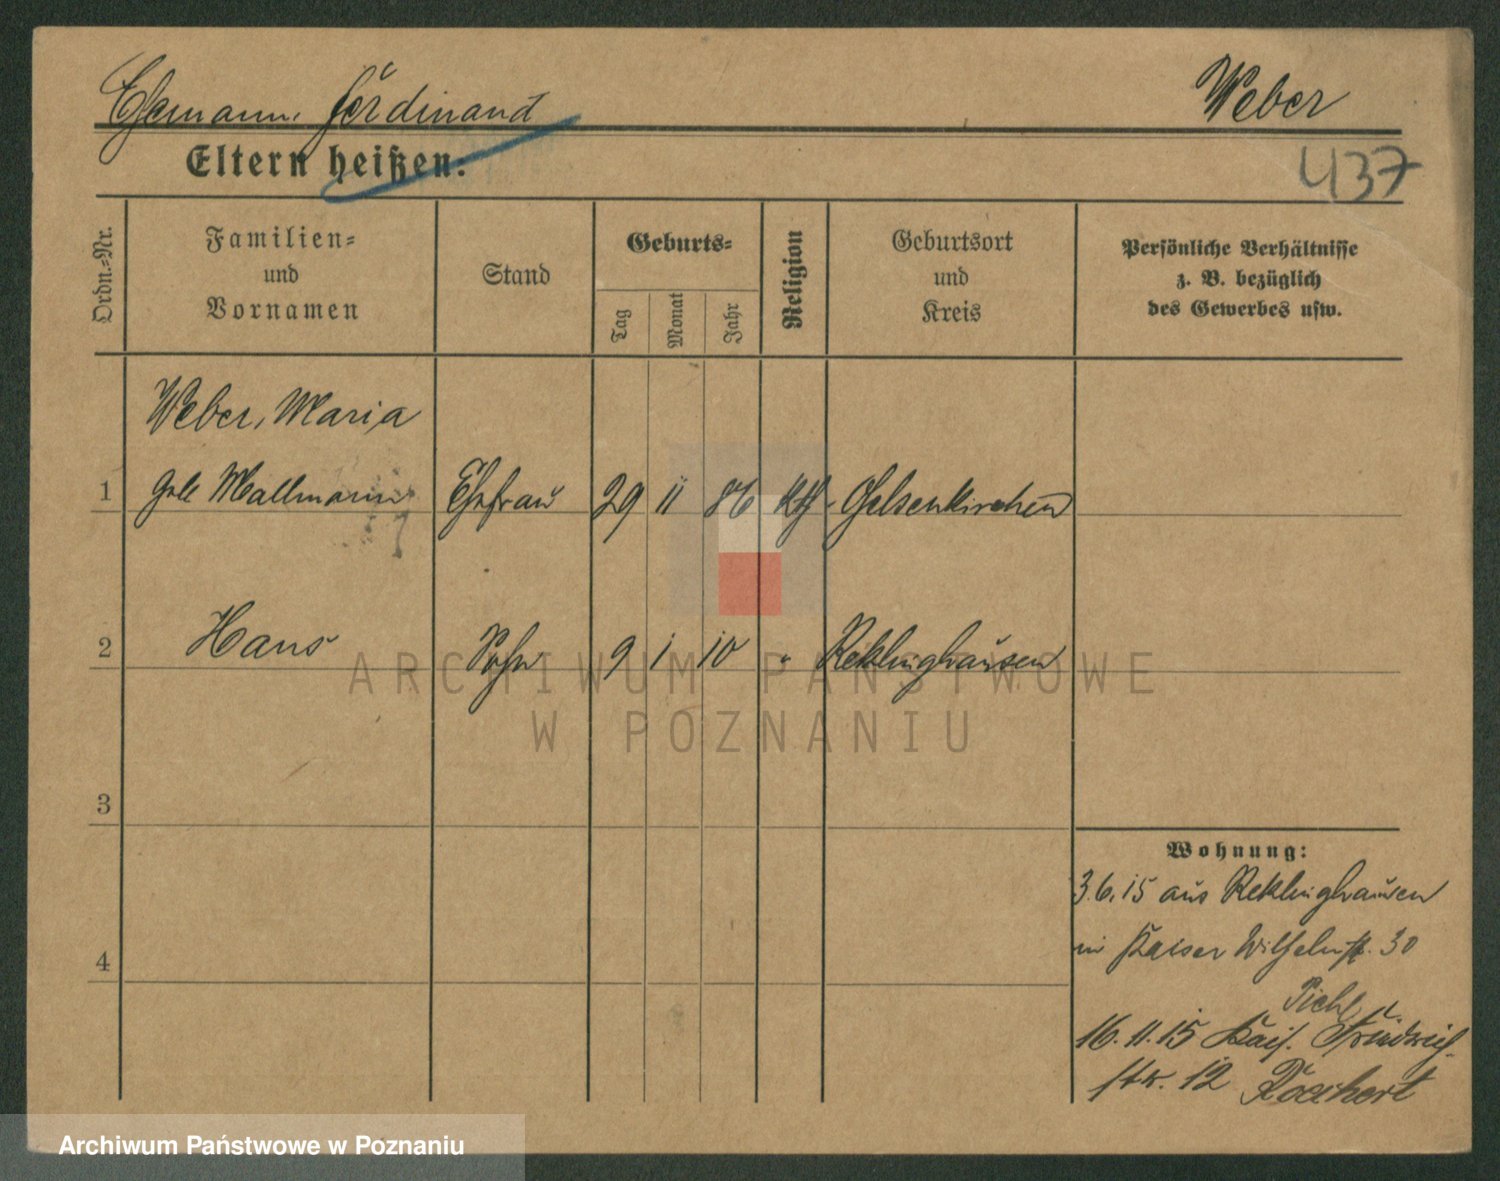 Ehemann: Ferdinand Weber
437
Eltern heißen:
Ordn.-Nr.
Familien-
und
Vornamen
Stand
Geburts-
Tag
Monat
Jahr
Religion
Geburtsort
und
Kreis
Persönliche Verhältnisse
z. B. bezüglich
des Gewerbes usw.
Weber, Maria
1 geb Mallmann Ehefrau 29 11 86 kth Gelsenkirchen
2 Hans Sohn 9 1 10 " Reklinghausen
3
4
Wohnung:
3.6.15 aus Reklinghausen
in Kaiser Wilhelmstr. 30
Piehl
16.11.15 Kais. Friedrich-
str. 12
ARCHIWUM PAŃSTWOWE
W POZNANIU
Archiwum Państwowe w Poznaniu